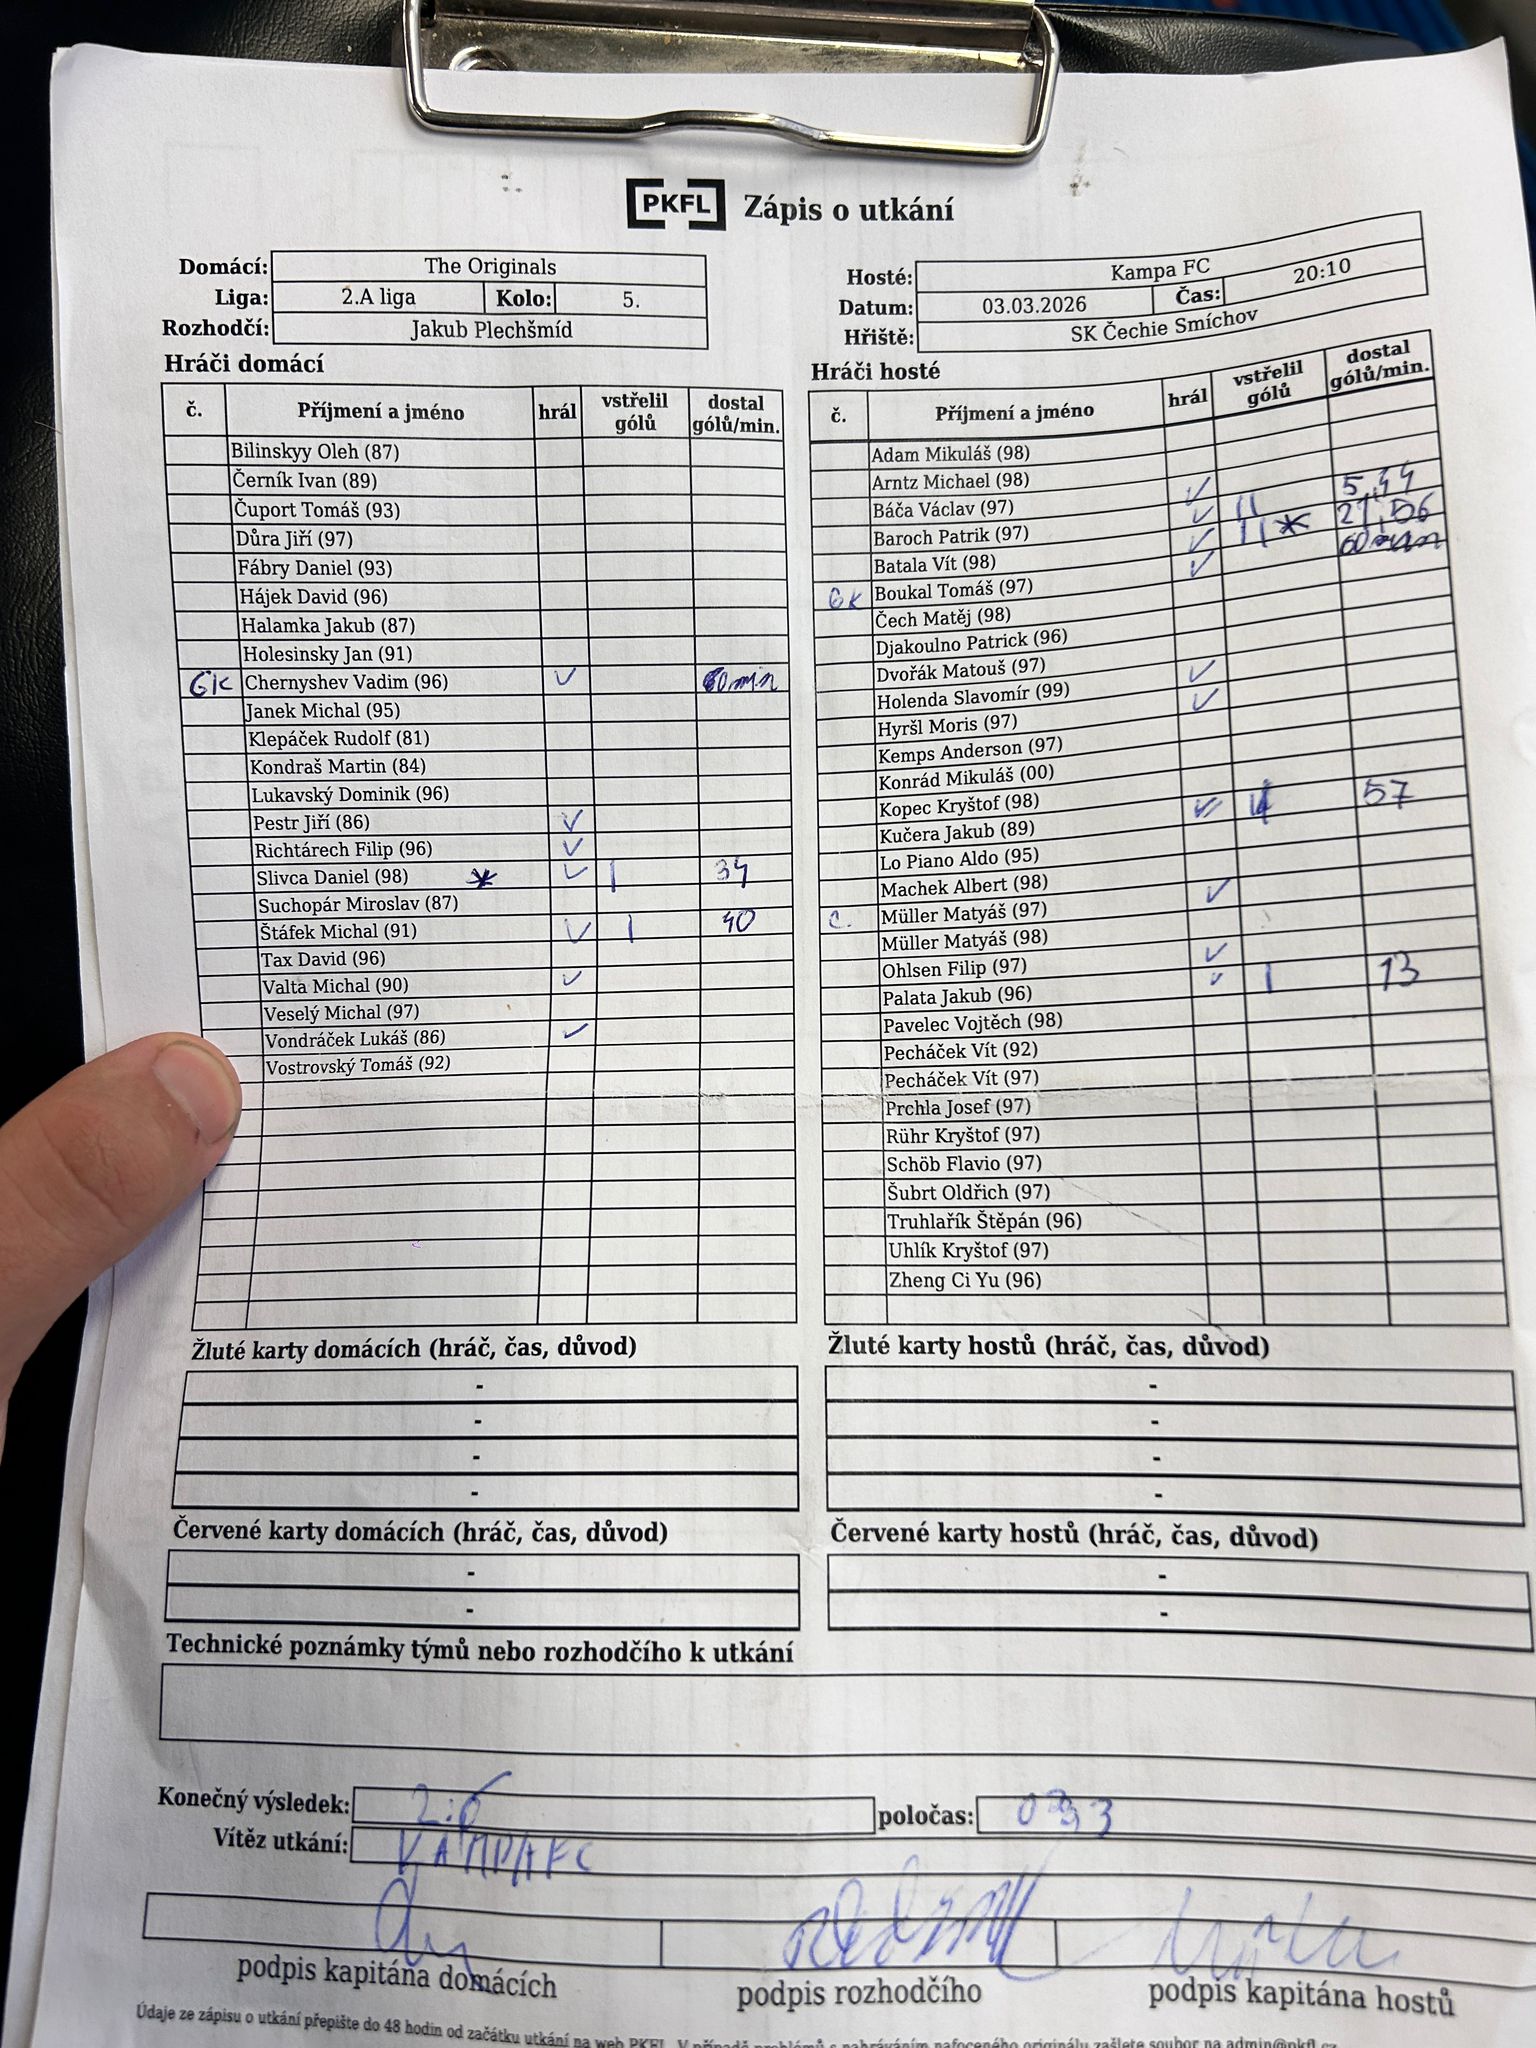 PKFL Zápis o utkání
Domácí: The Originals
Liga: 2.A liga Kolo: 5.
Rozhodčí: Jakub Plechšmíd
Hosté: Kampa FC
Datum: 03.03.2026 Čas: 20:10
Hřiště: SK Čechie Smíchov
Hráči domácí
č. Příjmení a jméno hrál vstřelil gólů dostal gólů/min.
Bilinskyy Oleh (87)
Černík Ivan (89)
Čuport Tomáš (93)
Důra Jiří (97)
Fábry Daniel (93)
Hájek David (96)
Halamka Jakub (87)
Holesinsky Jan (91)
GK Chernyshev Vadim (96) ✓ 60min
Janek Michal (95)
Klepáček Rudolf (81)
Kondraš Martin (84)
Lukavský Dominik (96)
Pestr Jiří (86) ✓
Richtárech Filip (96) ✓
Slivca Daniel (98) * ✓ | 34
Suchopár Miroslav (87)
Štáfek Michal (91) ✓ | 40
Tax David (96)
Valta Michal (90) ✓
Veselý Michal (97)
Vondráček Lukáš (86) ✓
Vostrovský Tomáš (92)
Hráči hosté
č. Příjmení a jméno hrál vstřelil gólů dostal gólů/min.
Adam Mikuláš (98)
Arntz Michael (98)
Báča Václav (97) ✓ || 5,44
Baroch Patrik (97) ✓ || * 21,56
Batala Vít (98) ✓
GK Boukal Tomáš (97) ✓ 60min
Čech Matěj (98)
Djakoulno Patrick (96)
Dvořák Matouš (97) ✓
Holenda Slavomír (99) ✓
Hyršl Moris (97)
Kemps Anderson (97)
Konrád Mikuláš (00)
Kopec Kryštof (98) ✓ 57
Kučera Jakub (89)
Lo Piano Aldo (95)
Machek Albert (98) ✓
C. Müller Matyáš (97)
Müller Matyáš (98)
Ohlsen Filip (97) ✓
Palata Jakub (96) ✓ | 13
Pavelec Vojtěch (98)
Pecháček Vít (92)
Pecháček Vít (97)
Prchla Josef (97)
Rühr Kryštof (97)
Schöb Flavio (97)
Šubrt Oldřich (97)
Truhlařík Štěpán (96)
Uhlík Kryštof (97)
Zheng Ci Yu (96)
Žluté karty domácích (hráč, čas, důvod)
-
-
-
-
Žluté karty hostů (hráč, čas, důvod)
-
-
-
-
Červené karty domácích (hráč, čas, důvod)
-
-
Červené karty hostů (hráč, čas, důvod)
-
-
Technické poznámky týmů nebo rozhodčího k utkání
Konečný výsledek: 2:6 poločas:
Vítěz utkání: KAMPA FC
podpis kapitána domácích
podpis rozhodčího
podpis kapitána hostů
Údaje ze zápisu o utkání přepište do 48 hodin od začátku utkání na web PKFL. V případě problémů s nahráváním nafoceného originálu zašlete soubor na admin@pkfl.cz